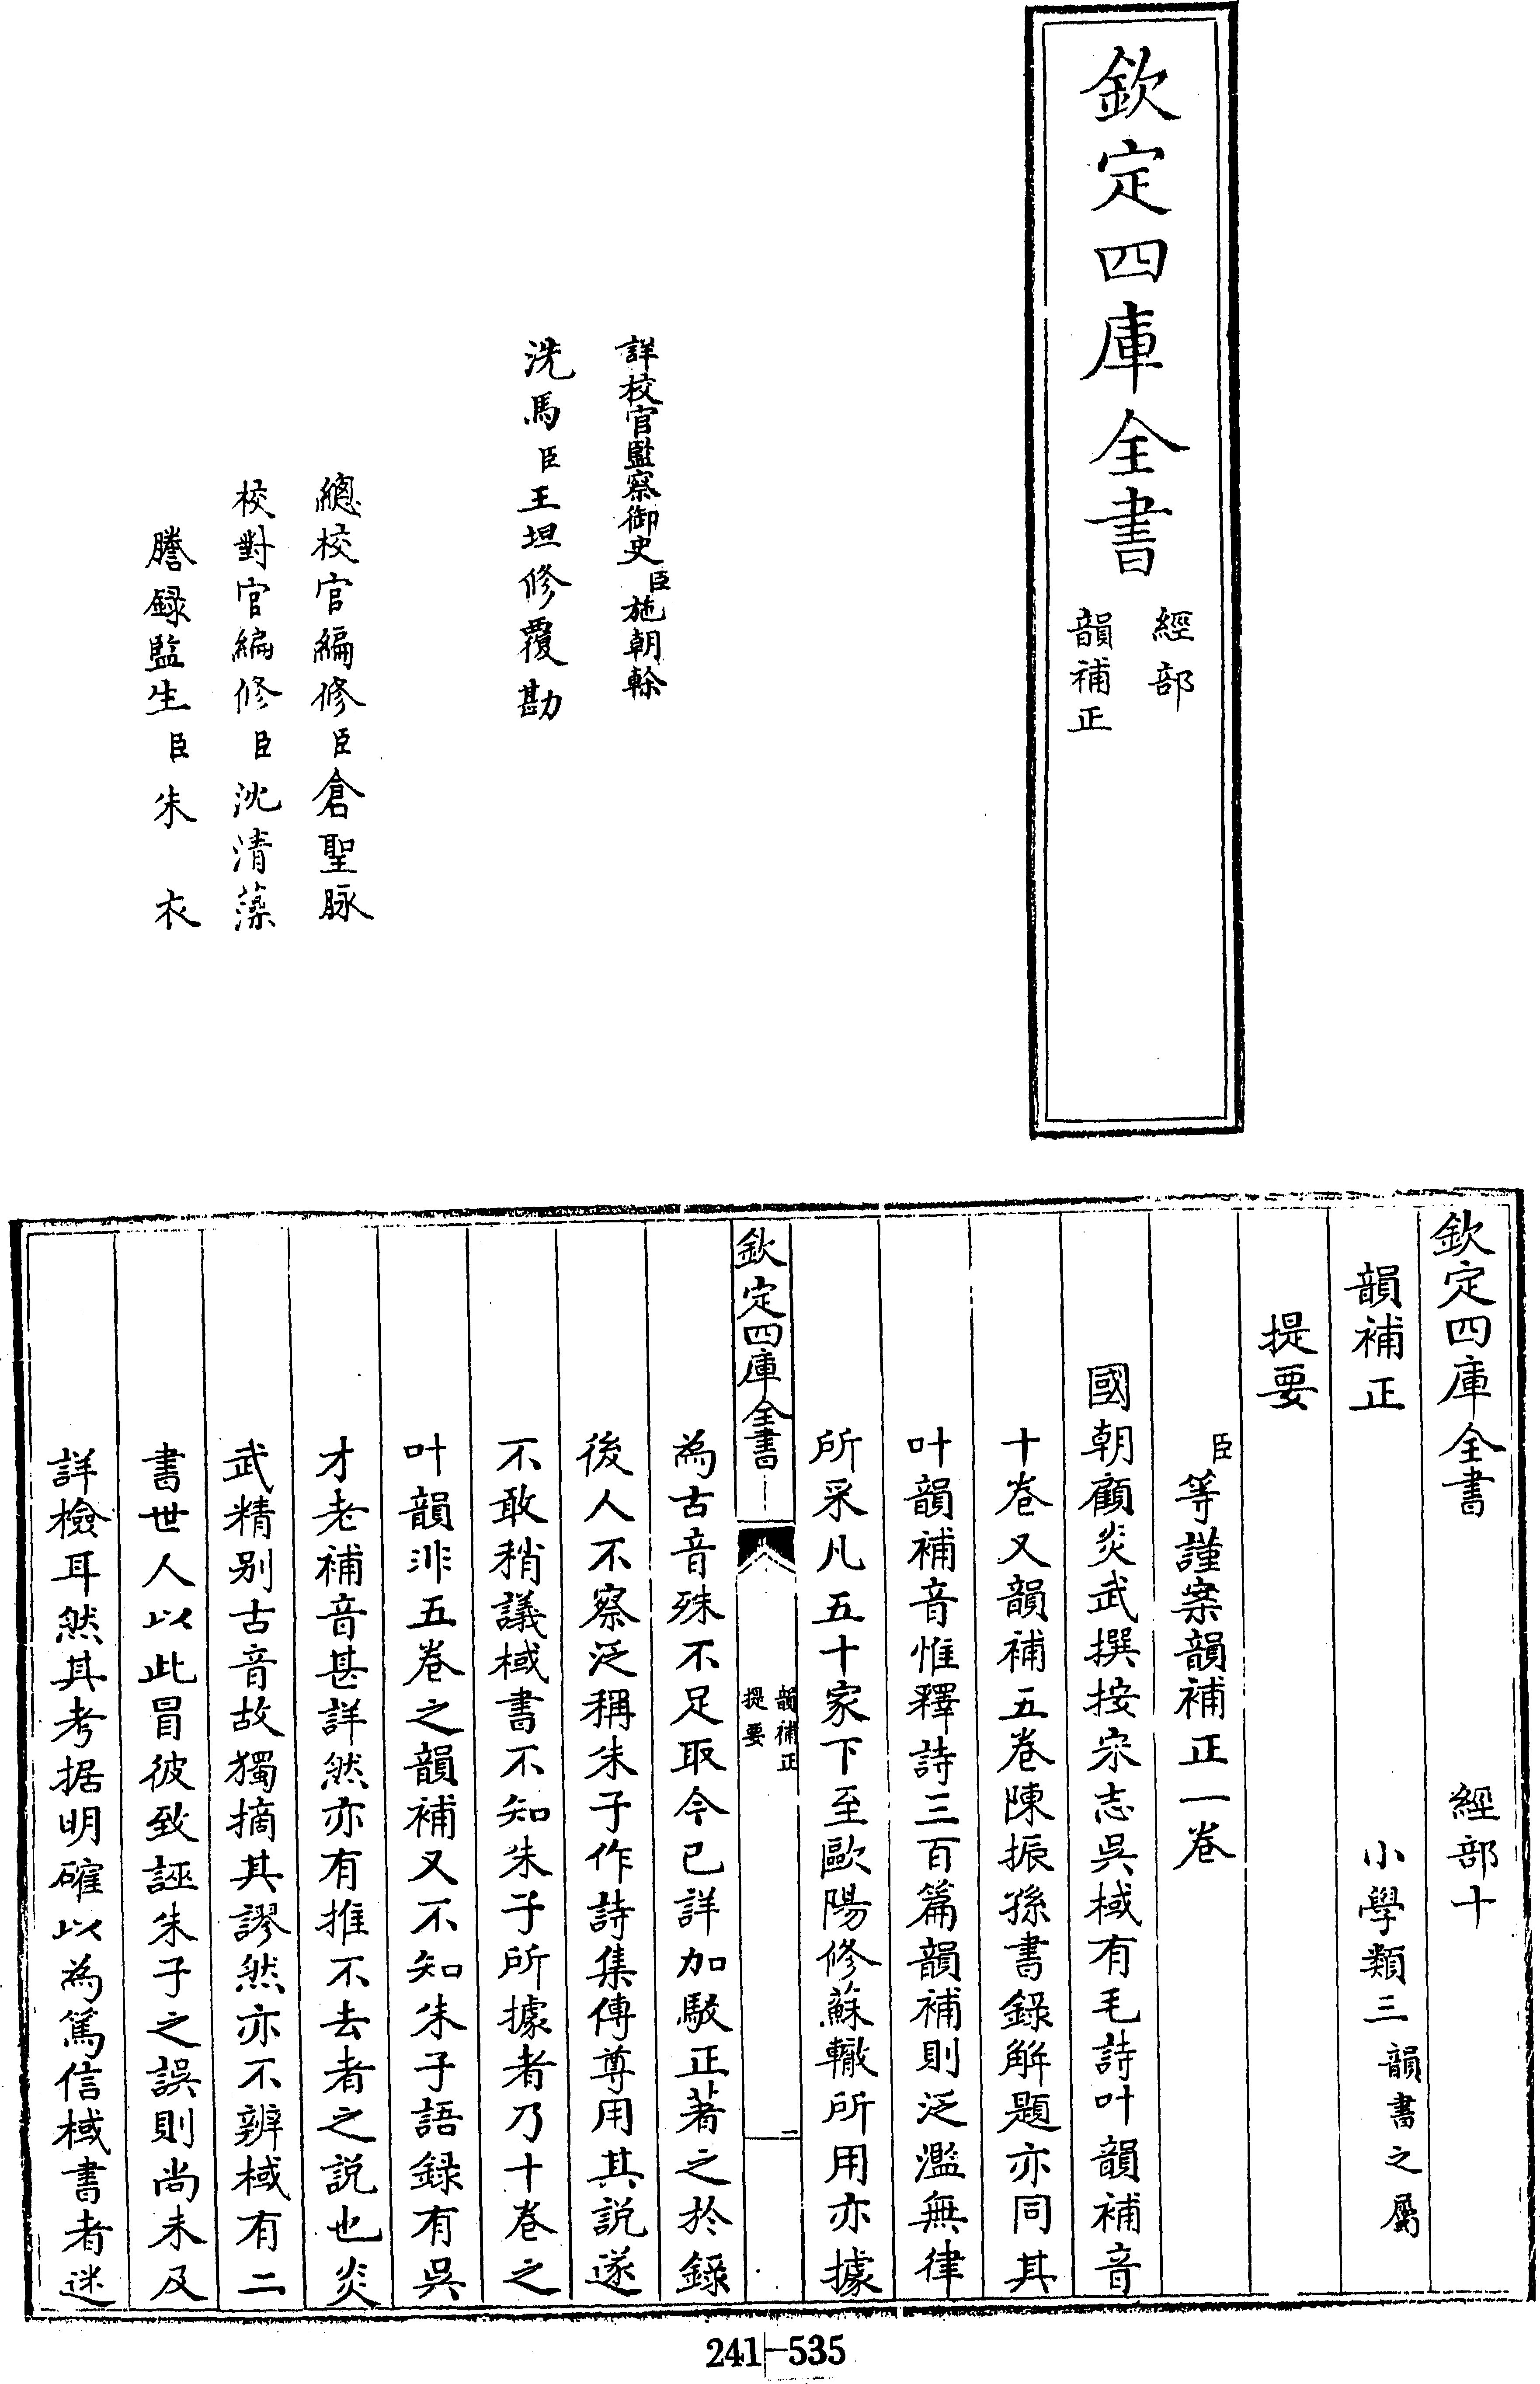 欽定四庫全書
經部
韻補正
詳校官監察御史臣施朝榦
洗馬臣王坦修覆勘
總校官編修臣倉聖脉
校對官編修臣沈清藻
謄録監生臣朱衣
欽定四庫全書 經部十
韻補正 小學類三韻書之屬
提要
臣等謹案韻補正一卷
國朝顧炎武撰按宋志吳棫有毛詩叶韻補音
十卷又韻補五卷陳振孫書錄解題亦同其
叶韻補音惟釋詩三百篇韻補則泛濫無律
所采凡五十家下至歐陽修蘇轍所用亦據
欽定四庫全書
韻補正
提要
一
為古音殊不足取今已詳加駁正著之於錄
後人不察泛稱朱子作詩集傳尊用其說遂
不敢稍議棫書不知朱子所據者乃十卷之
叶韻非五卷之韻補又不知朱子語録有吳
才老補音甚詳然亦有推不去者之說也炎
武精别古音故獨摘其謬然亦不辨棫有二
書世人以此冒彼致誣朱子之誤則尚未及
詳檢耳然其考据明確以為篤信棫書者迷
241-535